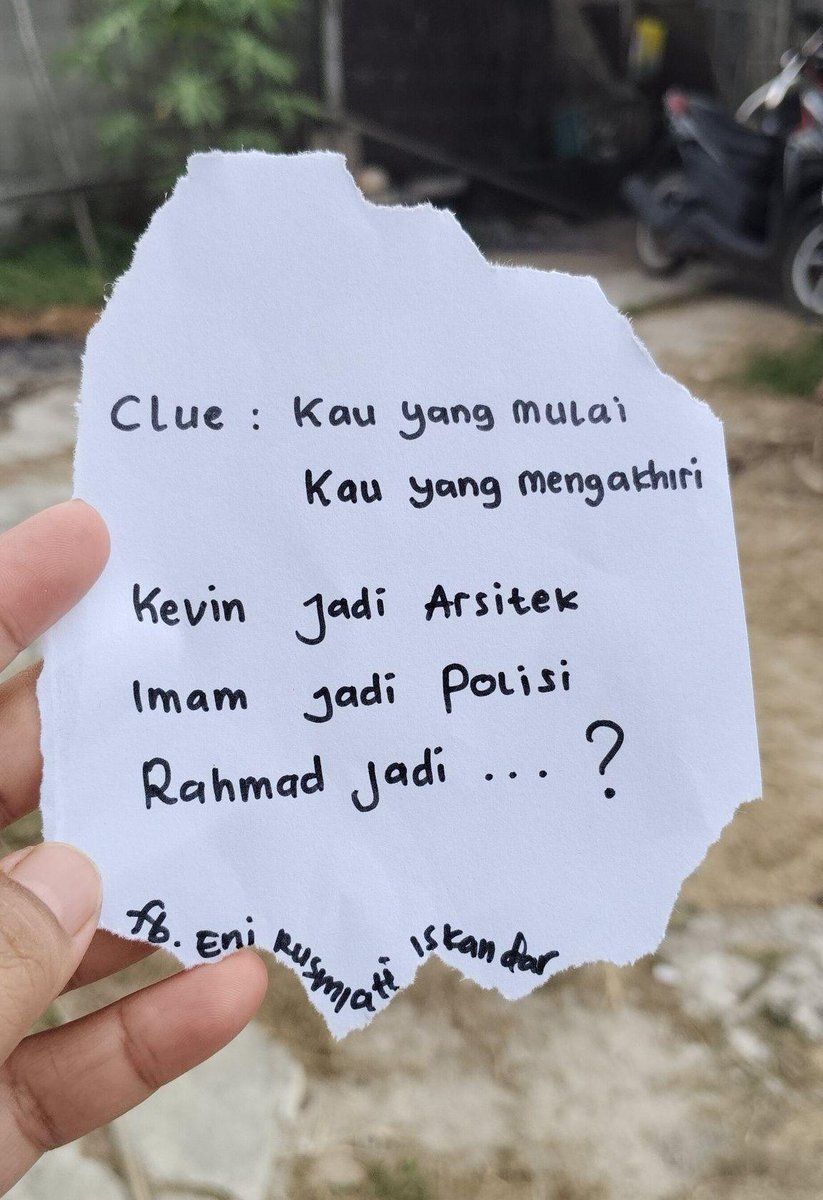 Clue : Kau yang mulai
Kau yang mengakhiri
Kevin jadi Arsitek
Imam jadi Polisi
Rahmad jadi ... ?
fb. Eni Rusmiati Iskandar